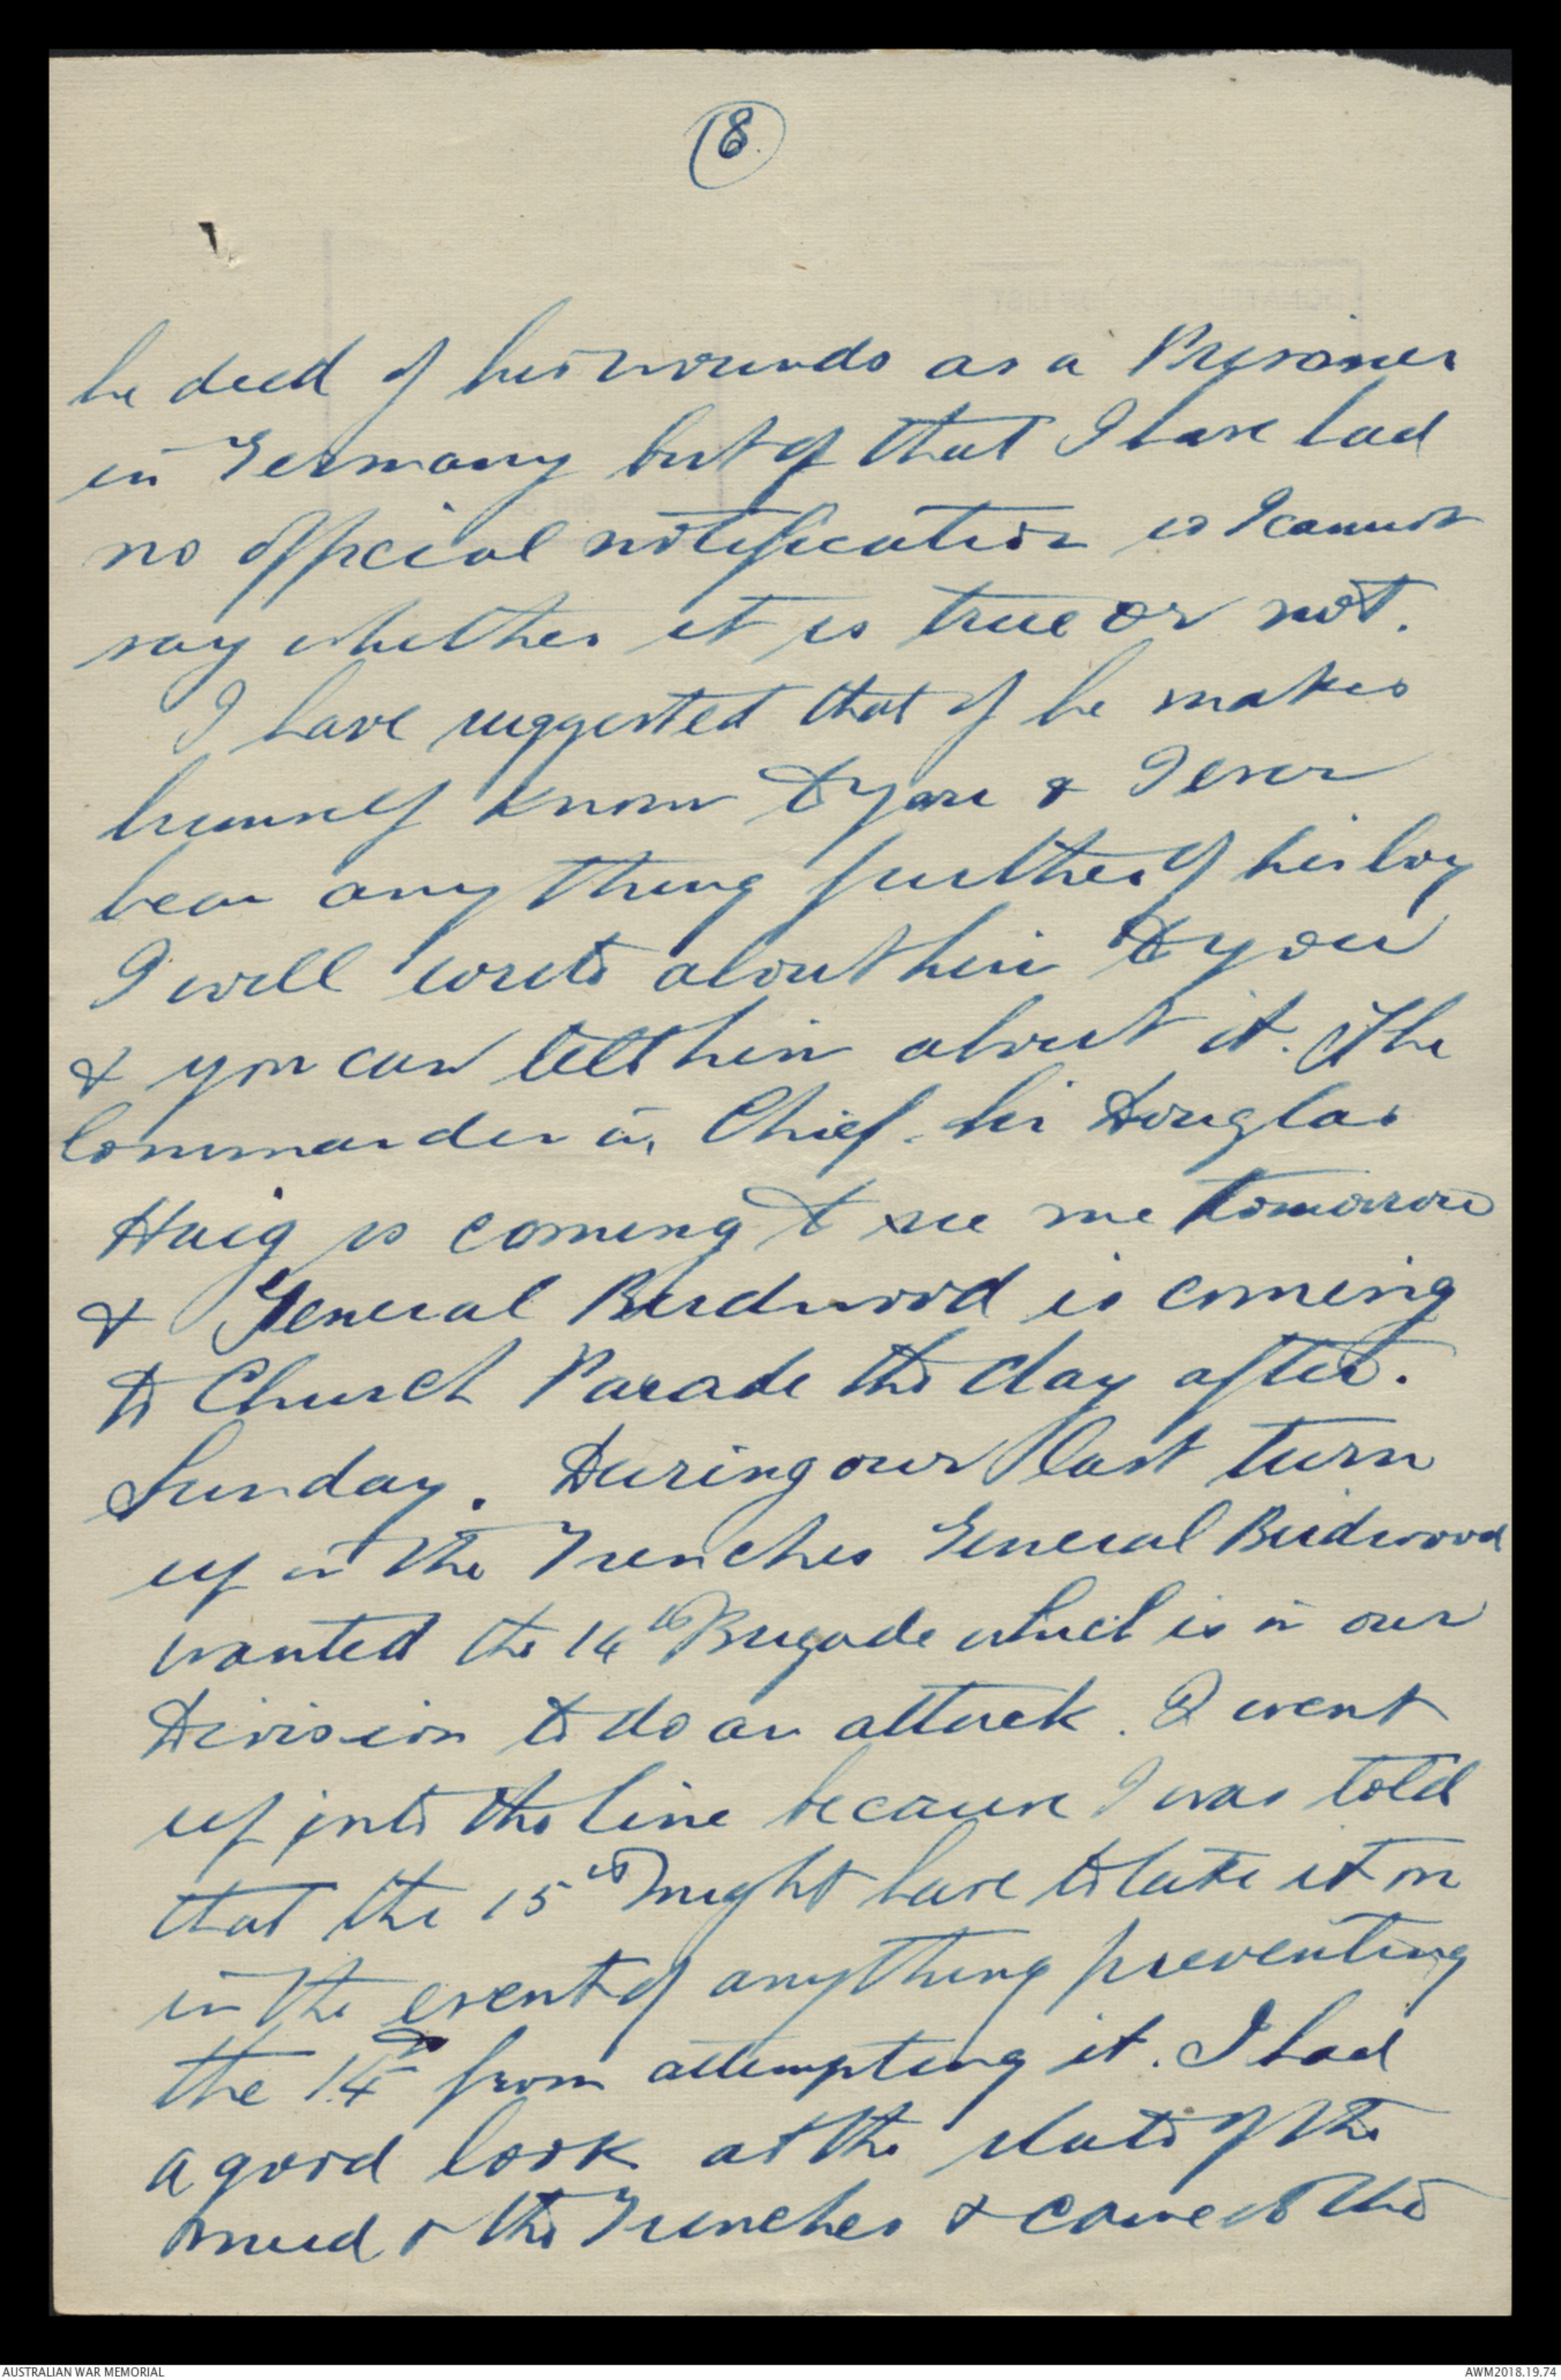 (8.)
he died of his wounds as a Prisoner
in Germany but of that I have had
no official notification so I cannot
say whether it is true or not.
I have suggested that if he makes
himself know to you & I ever
hear any thing further of his boy
I will write about him to you
& you can tell him about it. The
Commander in Chief. Sir Douglas
Haig is coming to see me tomorrow
& General Birdwood is coming
to Church Parade the day after.
Sunday. During our last turn
up in the Trenches General Birdwood
wanted the 14th Brigade which is in our
Division to do an attack. I went
up into the line because I was told
that the 15th might have to take it on
in the event of anything preventing
the 14th from attempting it. I had
a good look at the state of the
mud & the Trenches & came to the
AUSTRALIAN WAR MEMORIAL
AWM2018.19.74